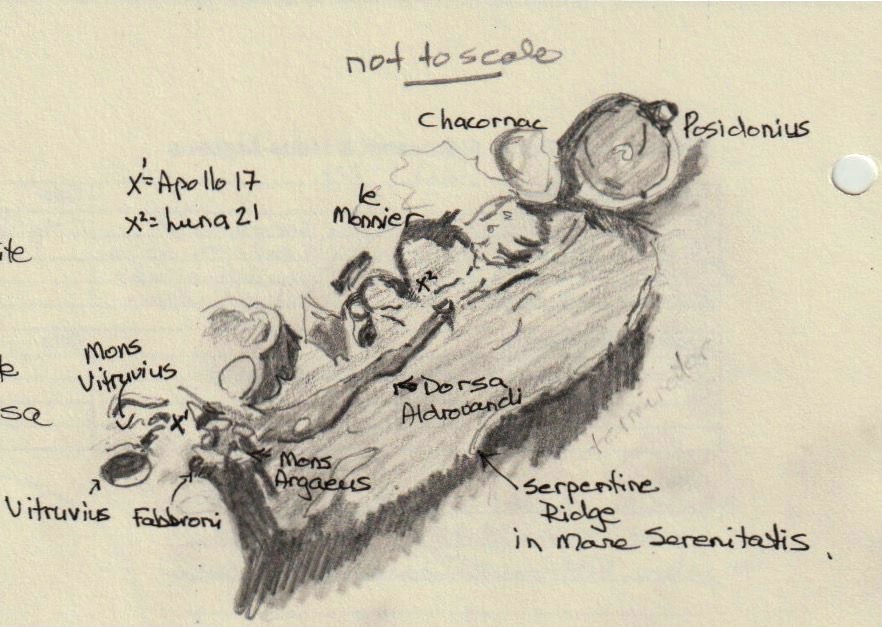 not to scale
Chacornac
Posidonius
X¹= Apollo 17
X²= Luna 21
le
Monnier
ite
X²
Mons
Vitruvius
le
sa
X¹
Dorsa
Aldrovandi
terminator
Mons
Argaeus
Vitruvius
Fabbroni
Serpentine
Ridge
in Mare Serenitatis.